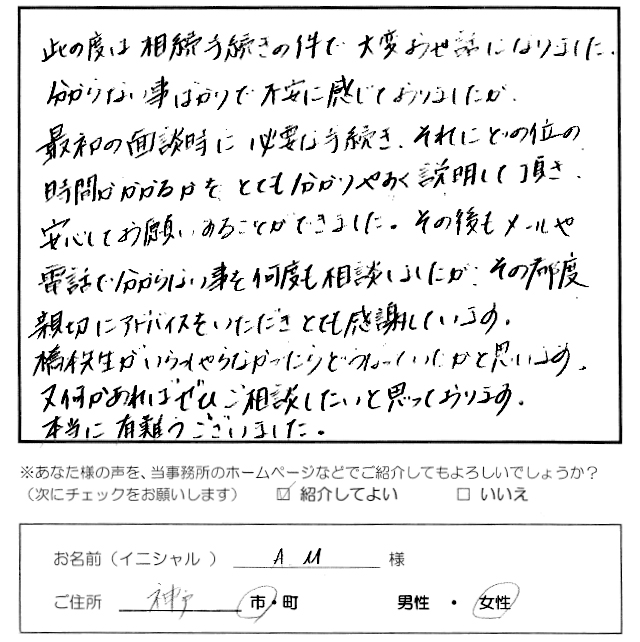 此の度は相続手続きの件で大変お世話になりました。
分からない事ばかりで不安に感じておりましたが、
最初の面談時に必要な手続き、それにどの位の
時間がかかるかをとても分かりやすく説明して頂き、
安心してお願いすることができました。その後もメールや
電話で分からない事を何度も相談しましたが、その都度
親切にアドバイスをいただきとても感謝しています。
橋本先生がいらっしゃらなかったらどうなっていたかと思います。
又何かあればぜひご相談したいと思っております。
本当に有難うございました。
※あなた様の声を、当事務所のホームページなどでご紹介してもよろしいでしょうか?
（次にチェックをお願いします） ☑ 紹介してよい □ いいえ
お名前（イニシャル ） A M 様
ご住所 神戸 市・町 男性 ・ 女性